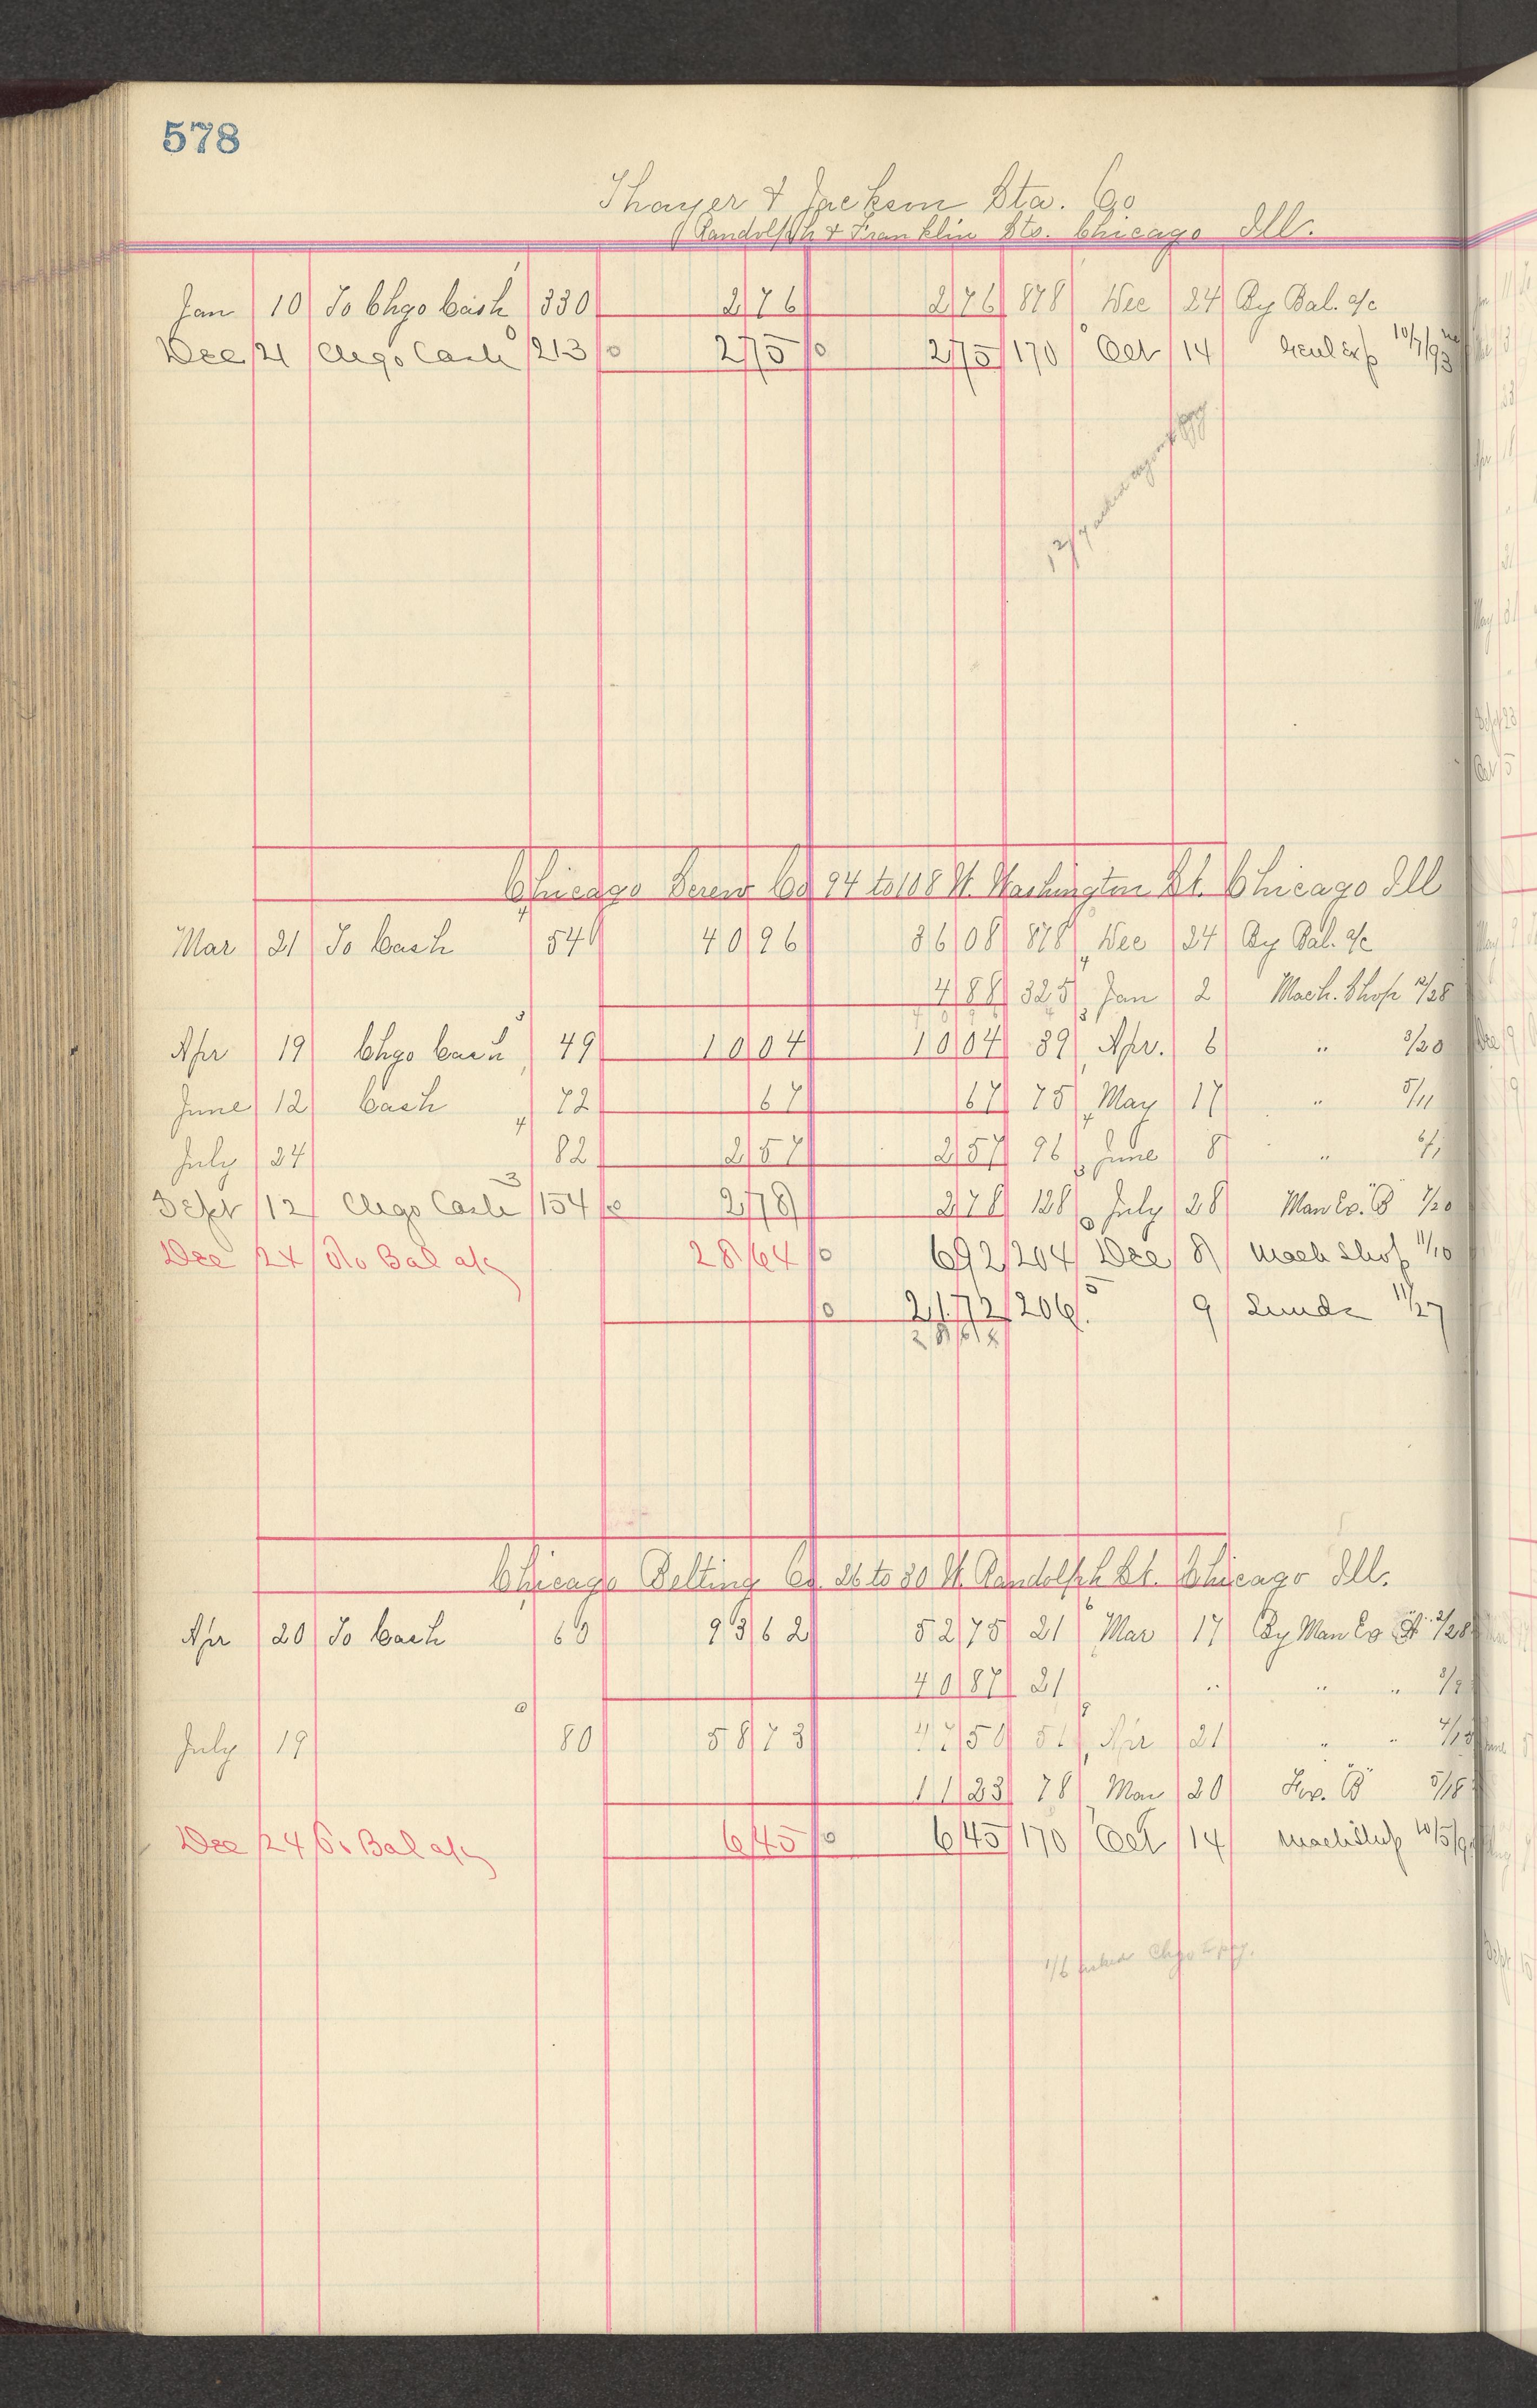 578
Thayer & Jackson Sta. Co
Randolph & Franklin Sts. Chicago Ill.
Jan 10 To Chgo Cash 330 2 76 2 76 878 Dec 24 By Bal. a/c
Dec 21 Chgo Cash 213 2 75 2 75 170 Oct 14 Genl Exp 10/7/93
Chicago Screw Co 94 to 108 W. Washington St. Chicago Ill
Mar 21 To Cash 540 40 96 36 08 878 Dec 24 By Bal. a/c
4 88 325 Jan 2 Mach. Shop 12/28
Apr 19 Chgo Cash 49 10 04 10 04 39 Apr. 6 " 3/20
June 12 Cash 72 67 67 75 May 17 " 5/11
July 24 82 2 57 2 57 96 June 8 " 6/1
Sept 12 Chgo Cash 154 2 78 2 78 128 July 28 Man Co. "B" 7/20
Dec 24 To Bal a/c 28 64 6 92 204 Dec 8 Mach Shop 11/10
21 72 206 9 Sunds 11/27
28 64
Chicago Belting Co. 26 to 30 W. Randolph St. Chicago Ill.
Apr 20 To Cash 60 93 62 52 75 21 Mar 17 By Man Co "A" 2/28
40 87 21 " " " 3/7
July 19 80 58 73 47 50 Apr 21 " "
11 23 78 May 20 "B" 5/18
Dec 24 To Bal a/c 6 45 6 45 170 Oct 14 Mach Shop
1/6 Chgo to pay.